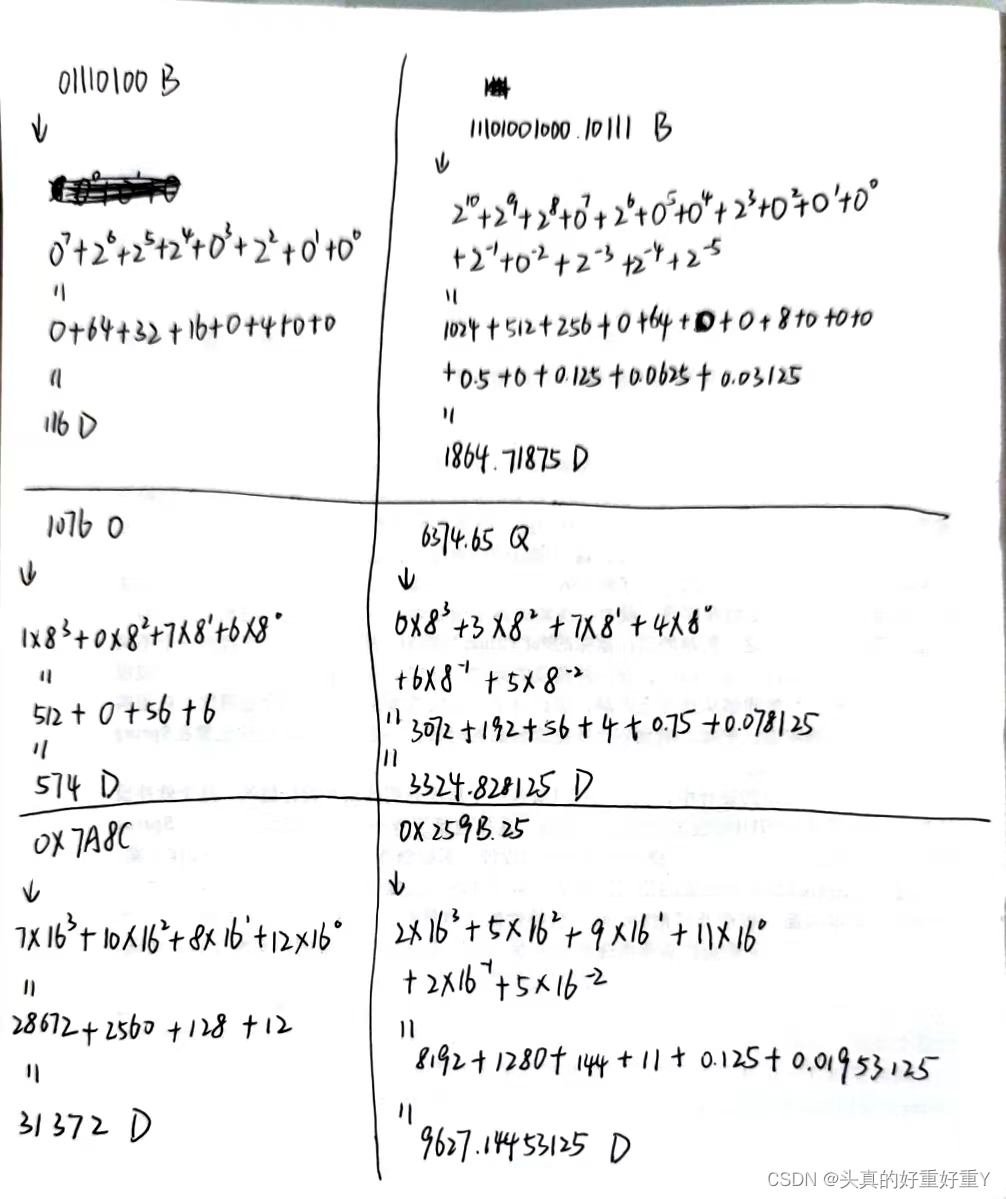 01110100 B
↓
0⁷+2⁶+2⁵+2⁴+0³+2²+0¹+0⁰
=
0+64+32+16+0+4+0+0
=
116 D
11101001000.10111 B
↓
2¹⁰+2⁹+2⁸+0⁷+2⁶+0⁵+0⁴+2³+0²+0¹+0⁰
+2⁻¹+0⁻²+2⁻³+2⁻⁴+2⁻⁵
=
1024+512+256+0+64+0+0+8+0+0+0
+0.5+0+0.125+0.0625+0.03125
=
1864.71875 D
1076 O
↓
1×8³+0×8²+7×8¹+6×8⁰
=
512+0+56+6
=
574 D
6374.65 Q
↓
6×8³+3×8²+7×8¹+4×8⁰
+6×8⁻¹+5×8⁻²
= 3072+192+56+4+0.75+0.078125
= 3324.828125 D
0X7A8C
↓
7×16³+10×16²+8×16¹+12×16⁰
=
28672+2560+128+12
=
31372 D
0X259B.25
↓
2×16³+5×16²+9×16¹+11×16⁰
+2×16⁻¹+5×16⁻²
=
8192+1280+144+11+0.125+0.01953125
=
9627.14453125 D
CSDN @头真的好重好重Y